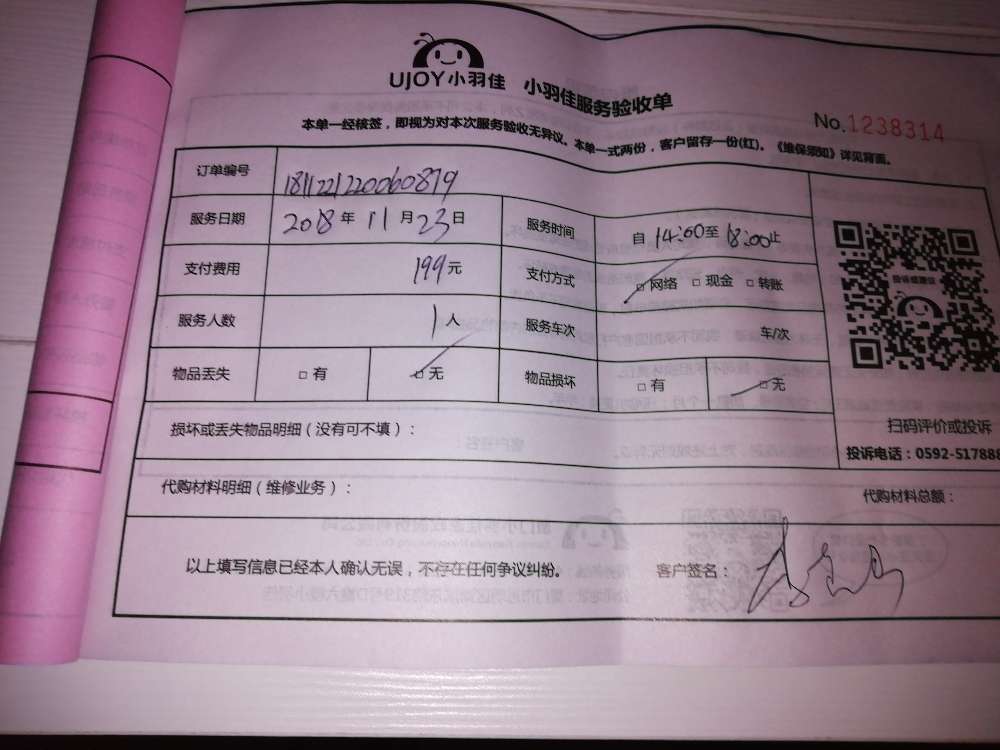 UJOY小羽佳 小羽佳服务验收单
No.1238314
本单一经核签，即视为对本次服务验收无异议。本单一式两份，客户留存一份(红)。《维保须知》详见背面。
订单编号 1811221220060879
服务日期 2018年11月23日 服务时间 自14:00至18:00止
支付费用 199元 支付方式 □网络 □现金 □转账
服务人数 1人 服务车次 车/次
物品丢失 □有 □无 物品损坏 □有 □无
扫码评价或投诉
损坏或丢失物品明细（没有可不填）：
投诉电话：0592-517888
代购材料明细（维修业务）： 代购材料总额：
以上填写信息已经本人确认无误，不存在任何争议纠纷。 客户签名：